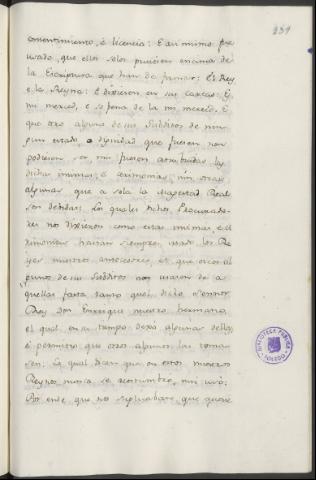 231
consentimiento, é licencia: E asi mismo pre
vado, que ellos solos pusiesen encima de
la Escriptura que han de firmar: El Rey
e la Reyna: E dixesen en sus cartas: E
mi merced, e so pena de la mi merced. E
que otro alguno de sus Subditos de nin
gun estado, o dignidad que fuesen non
podiesen ser nin fuesen atribuidas las
dichas insinias, é ceremonias, nin otras
algunas que a sola la Magestad Real
son debidas. Los quales dichos Procurado
res nos dixieron como estas insinias, é ce
rimonias havian siempre usado los Re
yes nuestros antecesores, é que otros al
gunos de sus Subditos non usaron de a
quellas fasta tanto que dicho Sennor
Rey Don Enrique nuestro hermano,
el qual en su tiempo dexo algunas dellas
é permitio que otros algunos las toma
sen: Lo qual dicen que en estos nuestros
Reynos nunca se acostumbro, nin vió:
Por ende que nos suplicaban, que quisie
BIBLIOTECA PUBLICA
TOLEDO